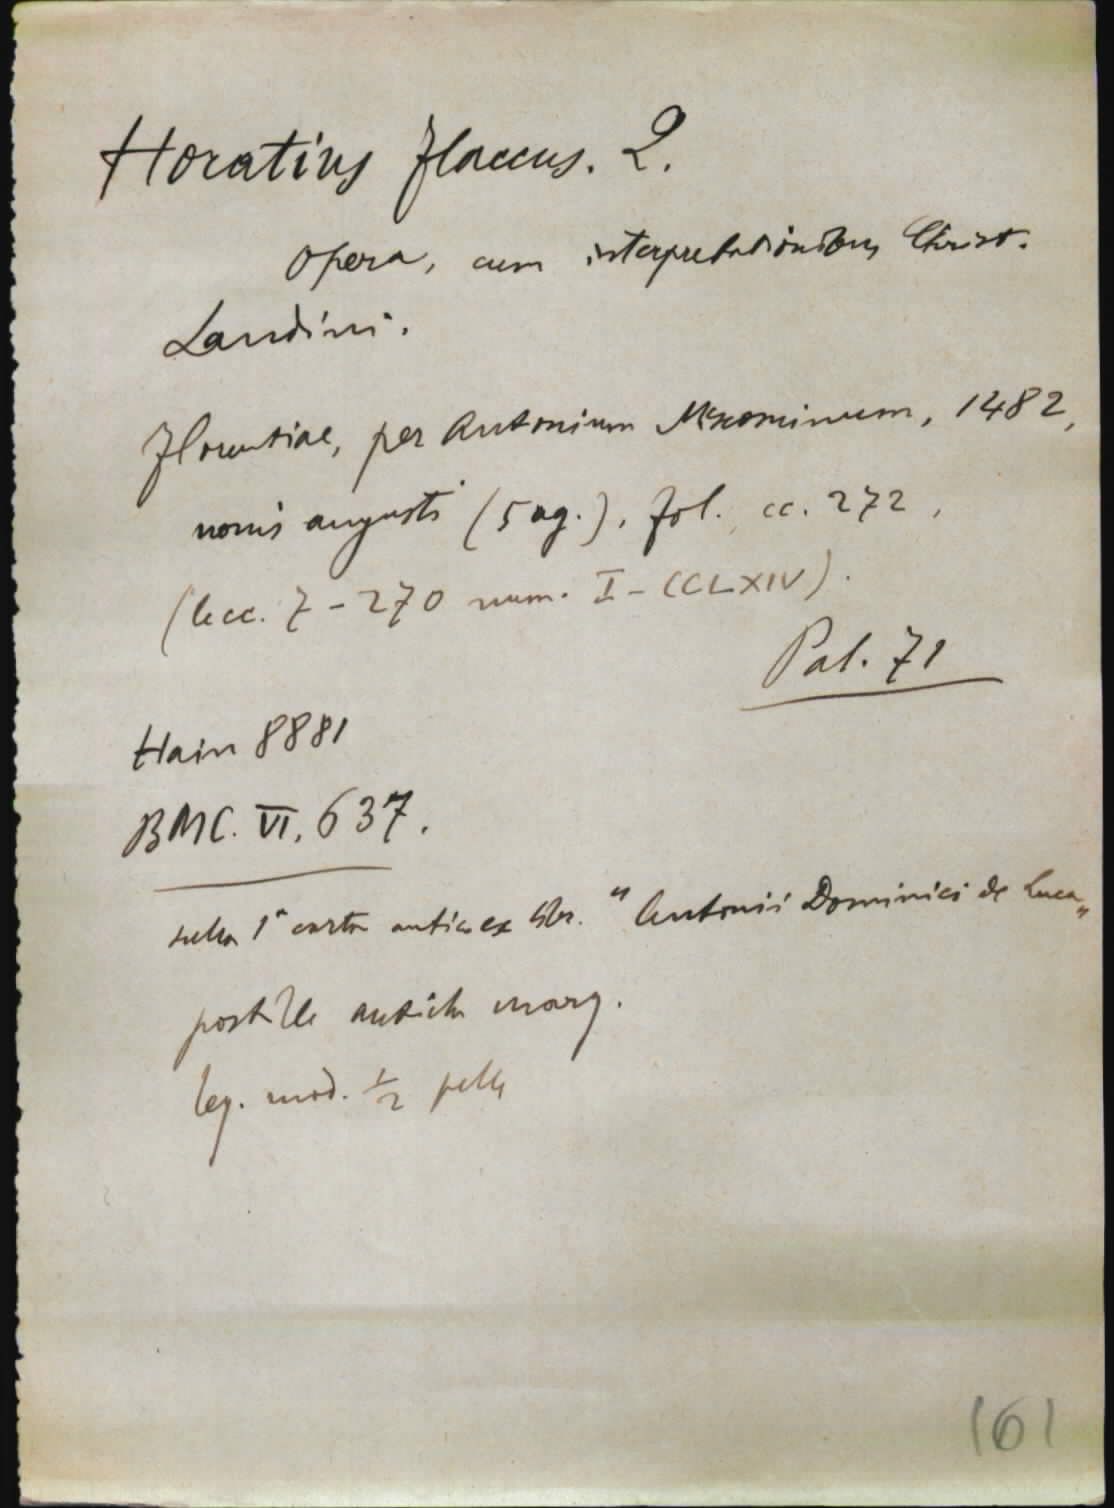 Horatius Flaccus. Q.
Opera, cum interpretationibus Christ.
Landini.
Florentiae, per Antonium Miscominum, 1482,
nonis augusti (5 ag.), fol. cc. 272,
(le cc. 7-270 num. I-CCLXIV).
Pal. 71
Hain 8881
BMC. VI, 637.
sulla 1ª carta antico ex libr. "Antonii Dominici de Luca"
postille antiche marg.
leg. mod. ½ pelle
161